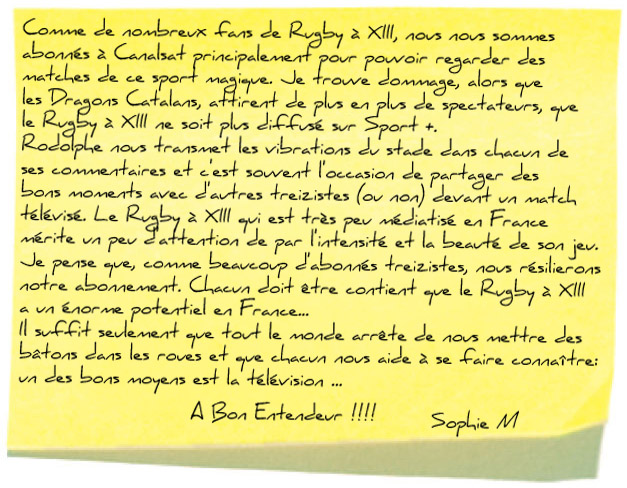 Comme de nombreux fans de Rugby à XIII, nous nous sommes
abonnés à Canalsat principalement pour pouvoir regarder des
matches de ce sport magique. Je trouve dommage, alors que
les Dragons Catalans, attirent de plus en plus de spectateurs, que
le Rugby à XIII ne soit plus diffusé sur Sport +.
Rodolphe nous transmet les vibrations du stade dans chacun de
ses commentaires et c'est souvent l'occasion de partager des
bons moments avec d'autres treizistes (ou non) devant un match
télévisé. Le Rugby à XIII qui est très peu médiatisé en France
mérite un peu d'attention de par l'intensité et la beauté de son jeu.
Je pense que, comme beaucoup d'abonnés treizistes, nous résilierons
notre abonnement. Chacun doit être contient que le Rugby à XIII
a un énorme potentiel en France...
Il suffit seulement que tout le monde arrête de nous mettre des
bâtons dans les roues et que chacun nous aide à se faire connaître:
un des bons moyens est la télévision ...
A Bon Entendeur !!!!
Sophie M